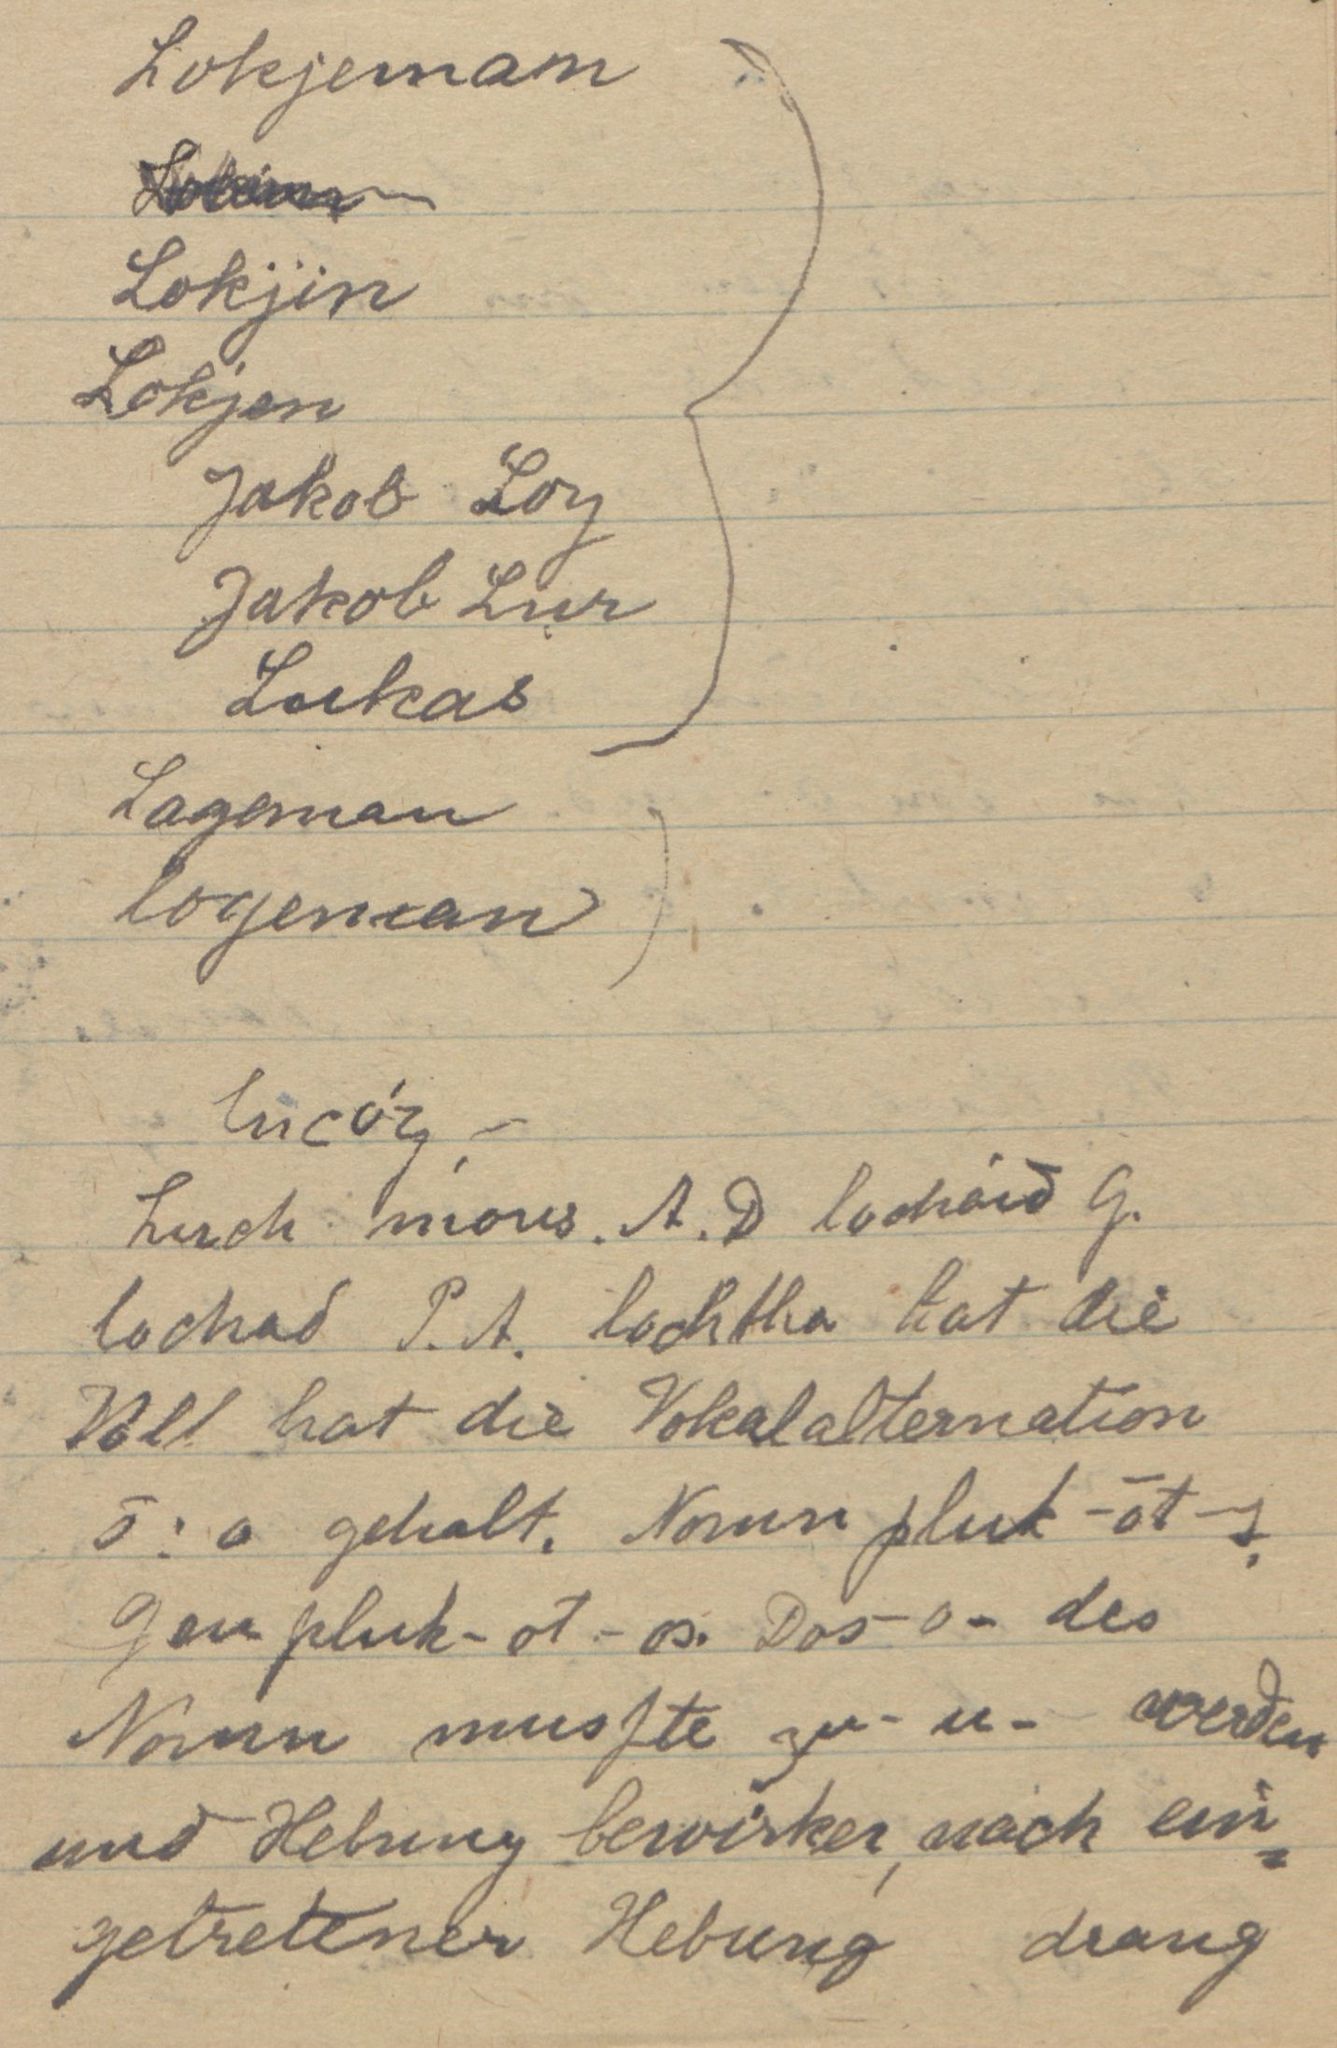 Lokjeman
Lokjin
Lokjen
Jakob Loy
Jakob Lur
Lukas
Lageman
logeman
lucóg,-
Luch mous. A. D lochaid G.
lochad P. A. lochtha hat die
Voll hat die Vokalalternation
ō : o gehalt. Nomn pluk-ōt-s.
Gen pluk-ot-os. Das -o- des
Nomn musste zu -u- werden
und Hebung bewirken, nach ein=
getretener Hebung drang